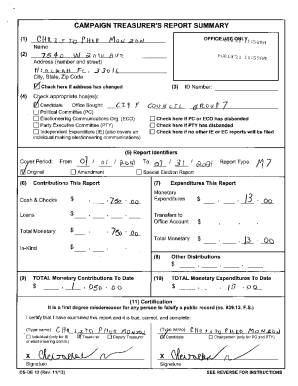 CAMPAIGN TREASURER'S REPORT SUMMARY
(1) CHRISTOPHER MONZON
OFFICE USE ONLY
Name
(2) 7540 W 20th AVE
Address (number and street)
HIALEAH FL. 33016
City, State, Zip Code
Check here if address has changed
(3) ID Number:
(4) Check appropriate box(es):
Candidate Office Sought: CITY COUNCIL GROUP 7
Political Committee (PC)
Electioneering Communications Org. (ECO) Check here if PC or ECO has disbanded
Party Executive Committee (PTY) Check here if PTY has disbanded
Independent Expenditure (IE) (also covers an Check here if no other IE or EC reports will be filed
individual making electioneering communications)
(5) Report Identifiers
Cover Period: From 07 / 01 / 2021 To 07 / 31 / 2021 Report Type: M7
Original Amendment Special Election Report
(6) Contributions This Report
(7) Expenditures This Report
Monetary
Cash & Checks $ 750.00
Expenditures $ 13.00
Loans $
Transfers to
Office Account $
Total Monetary $ 750.00
Total Monetary $ 13.00
In-Kind $
(8) Other Distributions
$
(9) TOTAL Monetary Contributions To Date
$ 1,050.00
(10) TOTAL Monetary Expenditures To Date
$ 13.00
(11) Certification
It is a first degree misdemeanor for any person to falsify a public record (ss. 839.13, F.S.)
I certify that I have examined this report and it is true, correct, and complete:
(Type name) CHRISTOPHER MONZON
(Type name) CHRISTOPHER MONZON
Individual (only for IE Treasurer Deputy Treasurer
or electioneering comm.)
Candidate Chairperson (only for PC and PTY)
X
X
Signature
Signature
DS-DE 12 (Rev. 11/13)
SEE REVERSE FOR INSTRUCTIONS